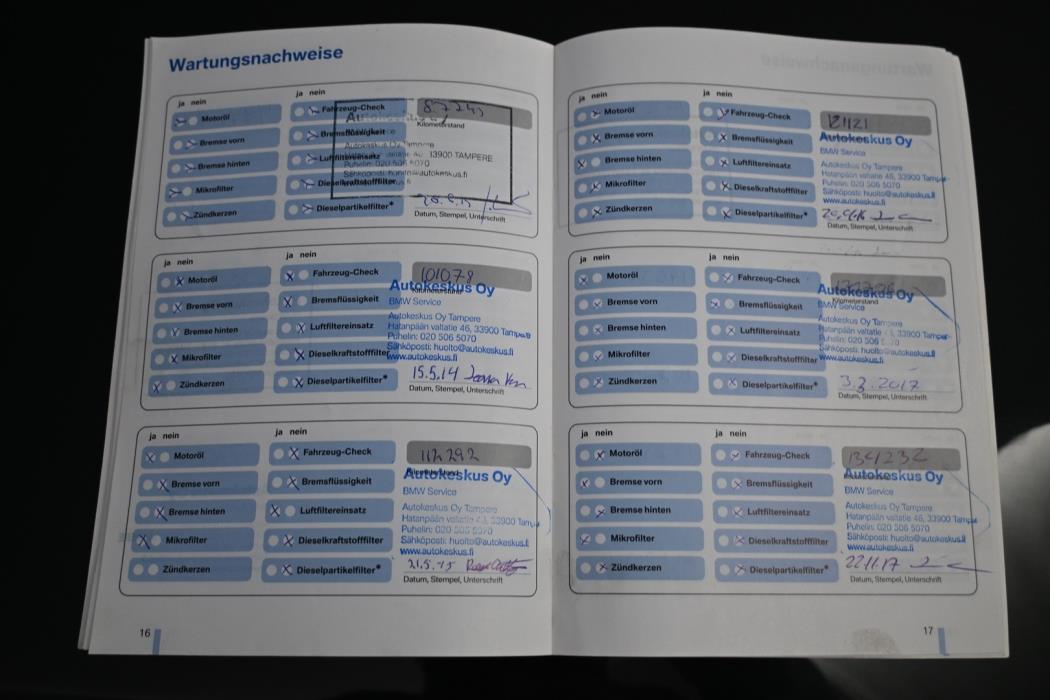 Wartungsnachweise
ja nein
Motoröl
Bremse vorn
Bremse hinten
Mikrofilter
Zündkerzen
ja nein
Fahrzeug-Check
Bremsflüssigkeit
Luftfiltereinsatz
Dieselkraftstofffilter
Dieselpartikelfilter*
Kilometerstand
Autokeskus Oy Tampere
13900 TAMPERE
Puhelin: 020 506 5070
Datum, Stempel, Unterschrift
ja nein
Motoröl
Bremse vorn
Bremse hinten
Mikrofilter
Zündkerzen
ja nein
Fahrzeug-Check
Bremsflüssigkeit
Luftfiltereinsatz
Dieselkraftstofffilter
Dieselpartikelfilter*
101078
Autokeskus Oy
BMW Service
Autokeskus Oy Tampere
Hatanpään valtatie 46, 33900 Tampere
Puhelin: 020 506 5070
Sähköposti: huolto@autokeskus.fi
www.autokeskus.fi
15.5.14
Datum, Stempel, Unterschrift
ja nein
Motoröl
Bremse vorn
Bremse hinten
Mikrofilter
Zündkerzen
ja nein
Fahrzeug-Check
Bremsflüssigkeit
Luftfiltereinsatz
Dieselkraftstofffilter
Dieselpartikelfilter*
112292
Autokeskus Oy
BMW Service
Autokeskus Oy Tampere
Hatanpään valtatie 46, 33900 Tampe
Puhelin: 020 506 5070
Sähköposti: huolto@autokeskus.fi
www.autokeskus.fi
21.5.15
Datum, Stempel, Unterschrift
16
ja nein
Motoröl
Bremse vorn
Bremse hinten
Mikrofilter
Zündkerzen
ja nein
Fahrzeug-Check
Bremsflüssigkeit
Luftfiltereinsatz
Dieselkraftstofffilter
Dieselpartikelfilter*
121121
Autokeskus Oy
BMW Service
Autokeskus Oy Tampere
Hatanpään valtatie 46, 33900 Tamper
Puhelin: 020 506 5070
Sähköposti: huolto@autokeskus.fi
www.autokeskus.fi
Datum, Stempel, Unterschrift
ja nein
Motoröl
Bremse vorn
Bremse hinten
Mikrofilter
Zündkerzen
ja nein
Fahrzeug-Check
Bremsflüssigkeit
Luftfiltereinsatz
Dieselkraftstofffilter
Dieselpartikelfilter*
Autokeskus Oy
Kilometerstand
BMW Service
Autokeskus Oy Tampere
Hatanpään valtatie 46, 33900 Tamper
Sähköposti: huolto@autokeskus.fi
www.autokeskus.fi
3.3.2017
Datum, Stempel, Unterschrift
ja nein
Motoröl
Bremse vorn
Bremse hinten
Mikrofilter
Zündkerzen
ja nein
Fahrzeug-Check
Bremsflüssigkeit
Luftfiltereinsatz
Dieselkraftstofffilter
Dieselpartikelfilter*
134232
Autokeskus Oy
BMW Service
Autokeskus Oy Tampere
Hatanpään valtatie 46, 33900 Tampe
Puhelin: 020 506 5070
Sähköposti: huolto@autokeskus.fi
www.autokeskus.fi
22.11.17
Datum, Stempel, Unterschrift
17